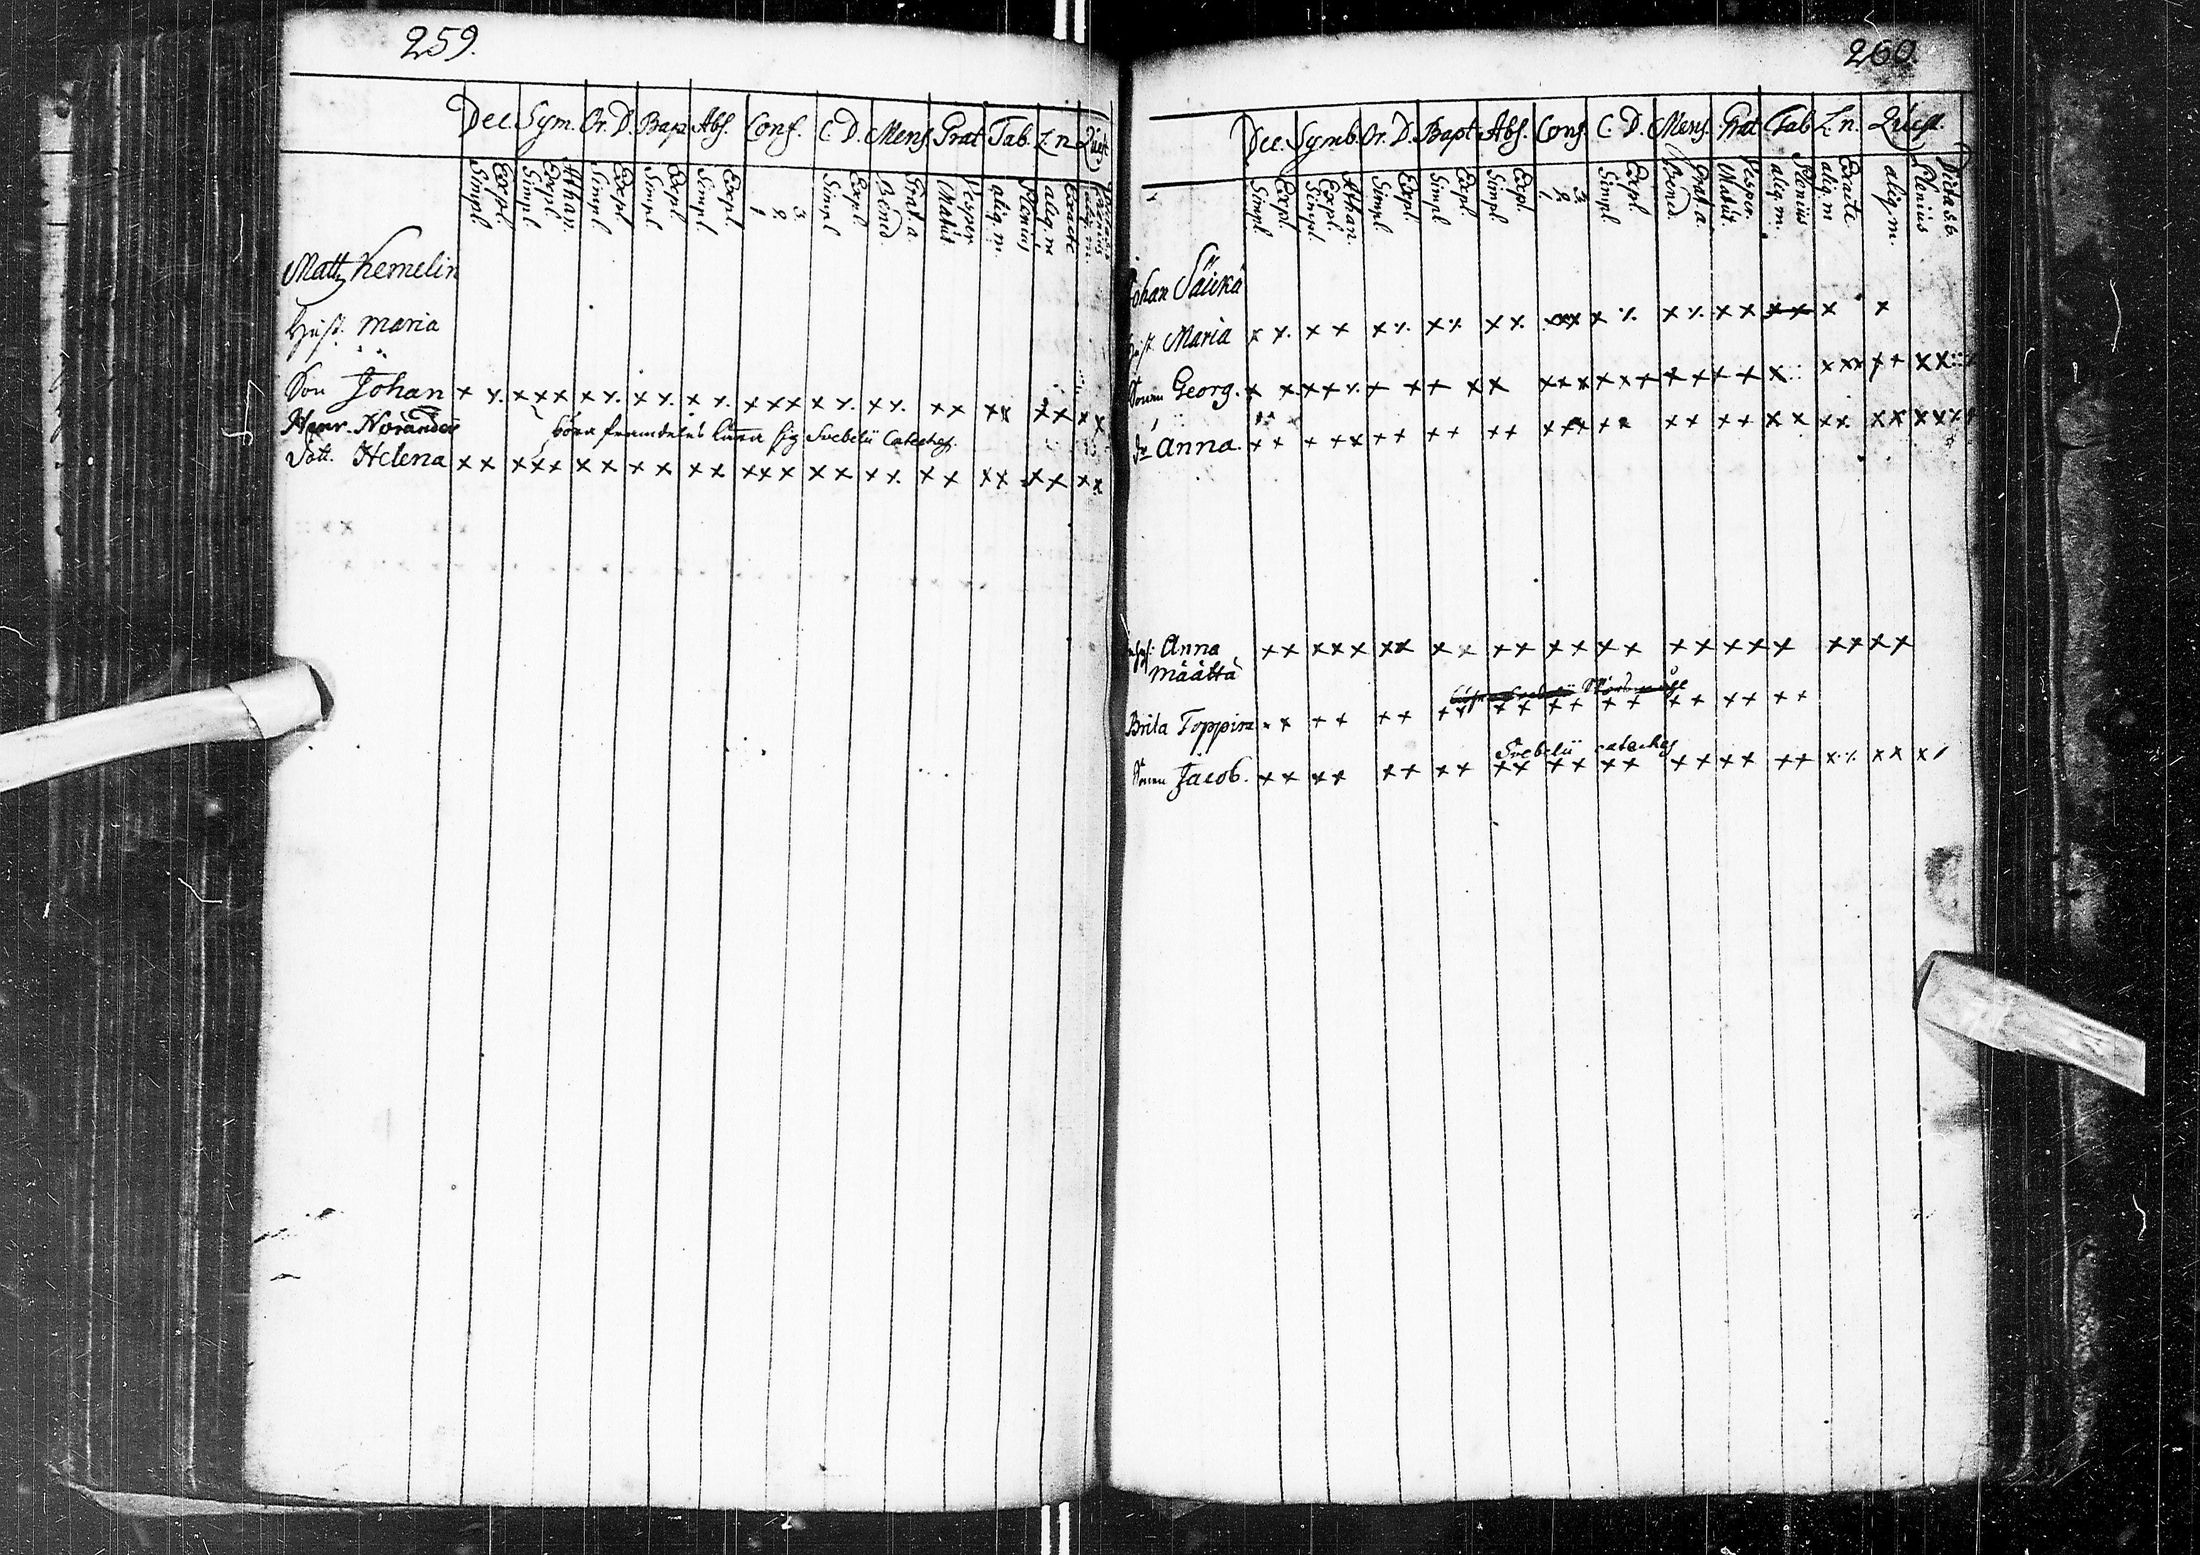 259.
Dec. Sym. Or. D. Bapt Abs. Conf. C. D. Mens. Grat Tab. L. n Quest
Simpl Expl. Simpl. Expl. Athan. Simpl. Expl Simpl Expl. Simpl. Expl. 1 2 3 Simpl Expl. Bened. Grat. a. Matut Vesper aliq. m. Plenius aliq. m Exacte
Matts Kemelin
Hust. Maria
Son Johan x ٪ x x x x ٪ x ٪ x ٪ x x x x ٪ x ٪ x x x x x x x x
Henr. Norander böra framdeles lära sig Svebelii Cateches.
Dott. Helena x x x x x x x x x x x x x x x x x x ٪ x x x x x x x x
260.
Dec. Symb. Or. D. Bapt Abs. Conf. C. D. Mens. Grat Tab L. n. Quest.
Simpl. Expl. Simpl. Expl. Athan. Simpl. Expl. Simpl. Expl. Simpl. Expl. 1 2 3 Simpl. Expl. Bened. Grat. a. Matut. Vesper. aliq. m. Plenius aliq. m Exacte aliq. m. Plenius Dicta s. b.
Johan Säükä
Hust. Maria x ٪ x x x ٪ x ٪ x ٪ x x x x ٪ x ٪ x x x x x x
Sonen Georg. x x x x ٪ x x x x x x x x x x x x x x x x x x x x x x x x
Anna. x x x x x x x x x x x x x x x x x x x x x x x x x x x x x
Anna x x x x x x x x x x x x x x x x x x x x x x x x x
Määttä
Brita Toppina x x x x x x x x x x x x x x x x x x x x
Svebelii cateches
Sonen Jacob. x x x x x x x x x x x x x x x x x x x x x ٪ x x x /